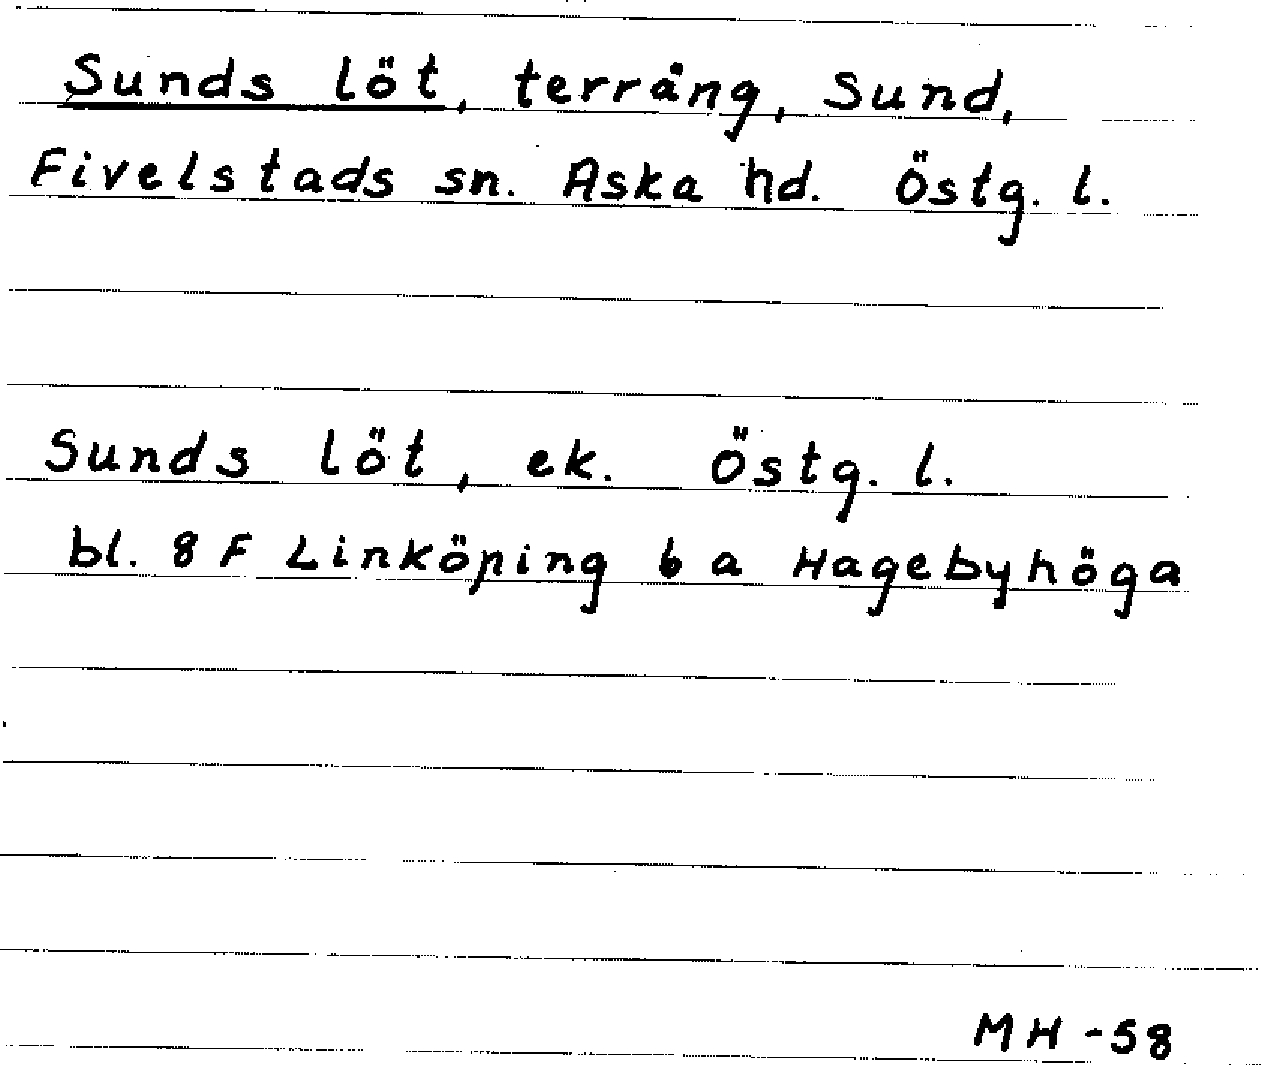 Sunds löt, terräng, Sund,
Fivelstads sn. Aska hd. Östg. l.
Sunds löt, ek. Östg. l.
bl. 8 F Linköping 6 a Hagebyhöga
MH-58